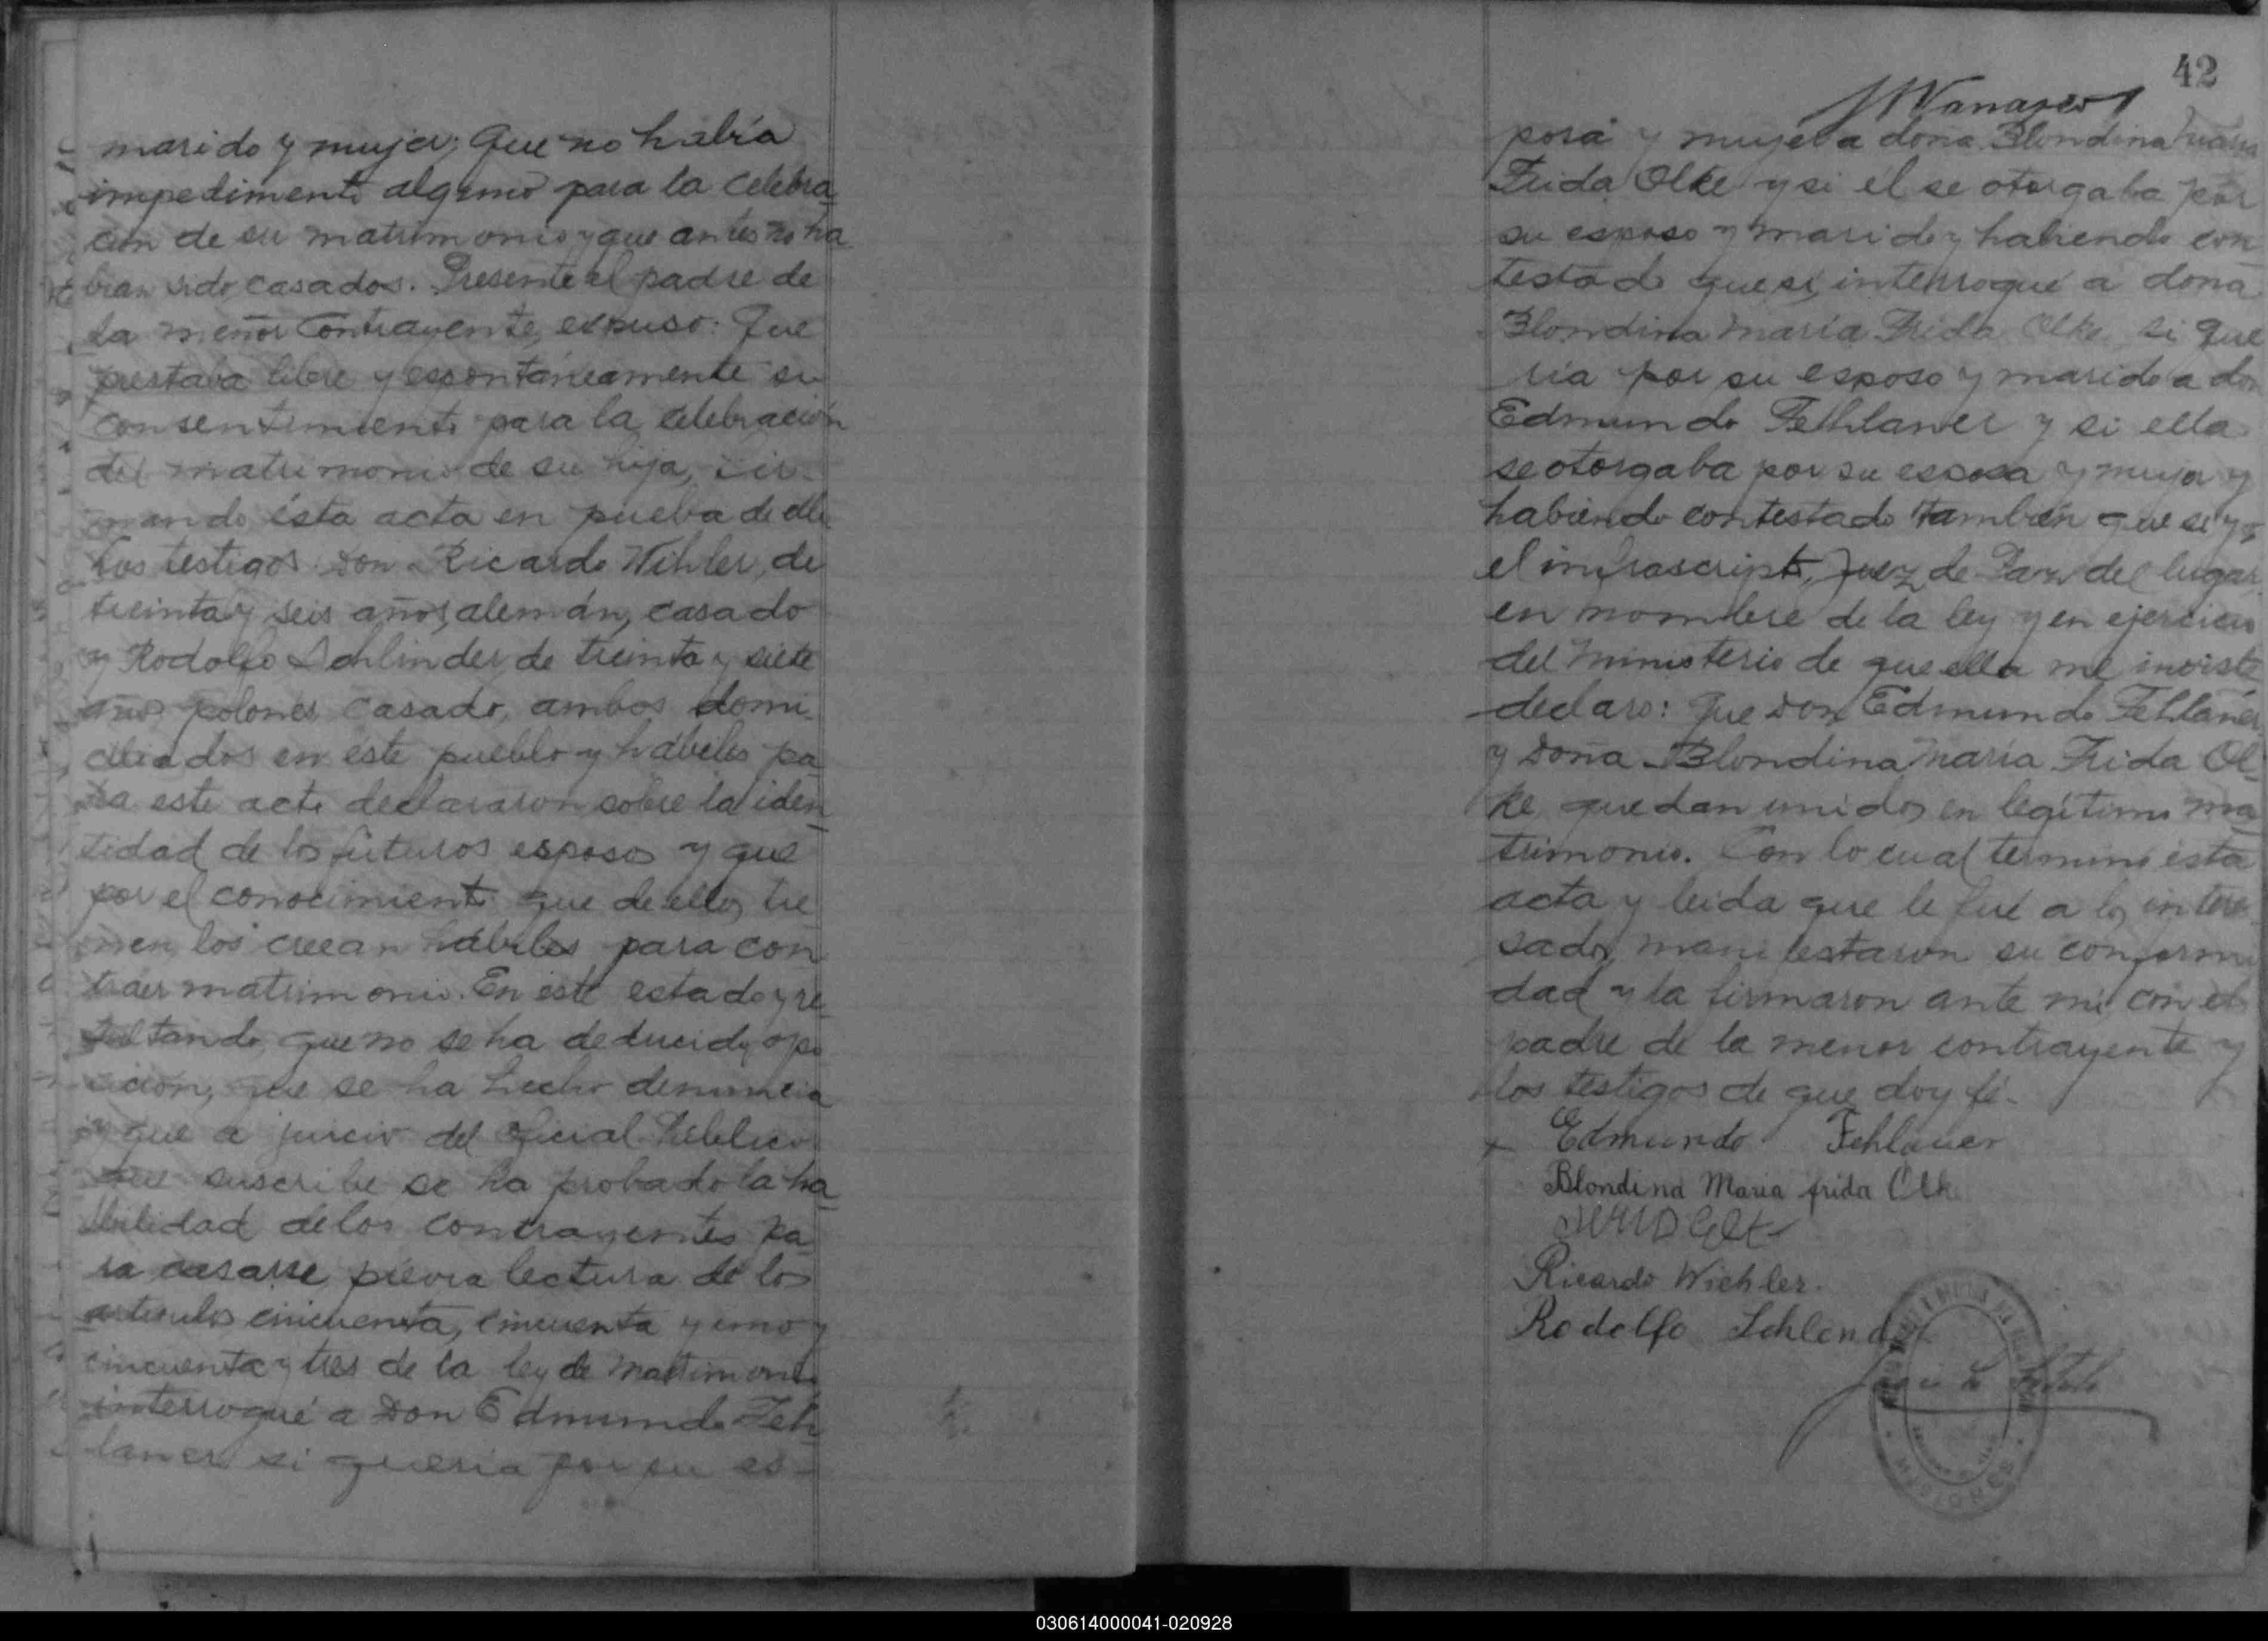 marido y mujer; Que no había
impedimento alguno para la celebra
ción de su matrimonio y que antes no ha
bían sido casados. Presente el padre de
la menor contrayente, expuso: Que
prestaba libre y espontáneamente su
consentimiento para la celebración
del matrimonio de su hija, fir-
mando ésta acta en prueba de ello
Los testigos Don Ricardo Wihler, de
treinta y seis años, alemán, casado
y Rodolfo Schlinder de treinta y siete
años polonés casado, ambos domi-
ciliados en éste pueblo y hábiles pa-
ra este acto declararon sobre la iden
tidad de los futuros esposos y que
por el conocimiento que de ellos tie
nen, los creean hábiles para con
traer matrimonio. En éste estado y re-
sultando que no se ha deducido opo
sición, que se ha hecho denuncia
y que a juicio del Oficial Público
que suscribe se ha probado la ha-
bilidad de los contrayentes pa-
ra casarse, prévia lectura de los
articulos cincuenta, cincuenta y uno y
cincuenta y tres de la ley de Matrimonio
interrogué a Don Edmundo Feh
laner si queria por su es-
42
posa y mujer a doña Blondina María
Frida Olke y si él se otorgaba por
su esposo y marido y habiendo con
testado que sí, interrogué a doña
Blondina María Frida Olke si que
ría por su esposo y marido a don
Edmundo Fehlaner y si ella
se otorgaba por su esposa y mujer y
habiendo contestado también que sí yo
el infrascripto, Juez de Paz del lugar
en nombre de la ley y en ejercicio
del Ministerio de que ella me inviste
declaro: Que Don Edmundo Fehlaner
y Doña Blondina María Frida Ol-
ke quedan unidos en legítimo ma
trimonio. Con lo cual terminó ésta
acta y leida que le fué a los intere-
sados, manifestaron su conformi
dad y la firmaron ante mi con el
padre de la menor contrayente y
los testigos de que doy fé-
x Edmundo Fehlauer
Blondina Maria frida Olke
Ricardo Wiehler.
Rodolfo Schlender
MISIONES
030614000041-020928